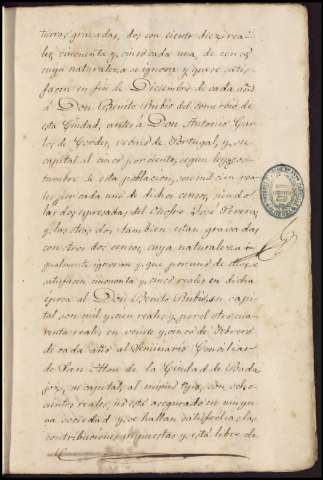 tierras gravadas, dos con ciento diez rea-
les, cincuenta y cinco cada una, de censos
cuya naturaleza se ignora y que se satis-
facen en fin de Diciembre de cada año
á Don Benito Rubio del comercio de
esta Ciudad, antes á Don Antonio
de vecino de Portugal, y su
capital al cinco por ciento, segun ley y cos-
tumbre de esta poblacion, son mil cien rea-
les por cada uno de dichos censos, siendo
las dos espresadas del Jose
y las otras dos tambien estan gravadas
con otros dos censos, cuya naturaleza i-
gualmente ignoran y que por uno de ellos se
satisfacen cincuenta y cinco reales en dicha
época al Don Benito Rubio, su capi-
tal, son mil y cien reales y por el otro cua-
renta reales en veinte y cinco de Febrero
de cada año al Seminario Conciliar
de San Aton de la Ciudad de Bada-
joz, su capital, al mismo tipo, son ocho-
cientos reales, no está asegurado en ningu-
na sociedad y se hallan satisfechas las
contribuciones impuestas y está libre de